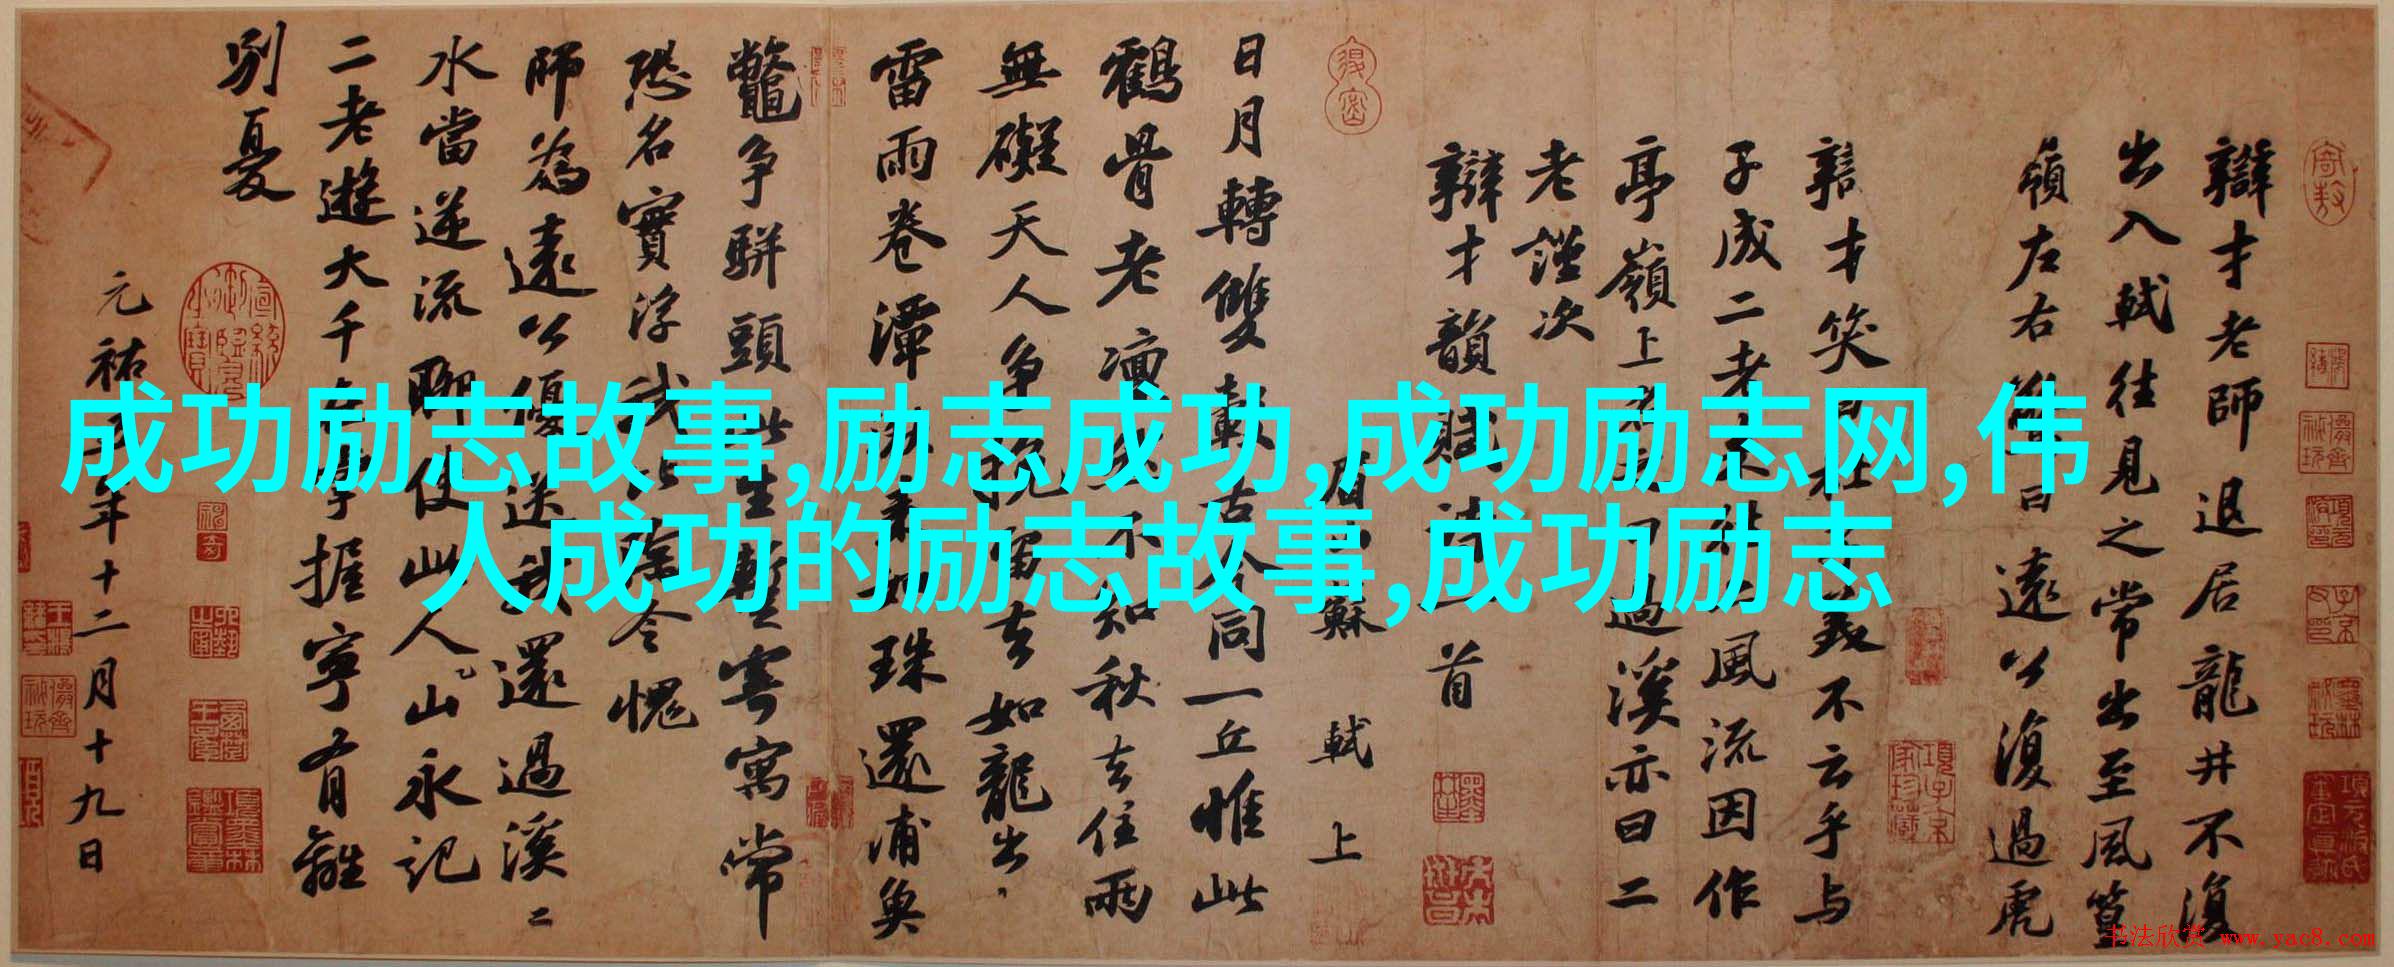 成功励志故事,励志成功,成功励志网,伟
人成功的励志故事,成功励志
辯才老師退居龍井不復
出入軾往見之常出至風篁
嶺左右驚曰遠公復過虎
辯才笑曰杜子美不云乎與
子成二老來往亦風流因作
亭嶺上名曰過溪亦曰二
老謹次
辯才韻賦詩一首
眉山蘇軾上
日月轉雙轂古今同一丘惟此
鶴骨老凜然不知秋去住兩
無礙天人爭挽留去如龍出
雷雨卷潭湫來如珠還浦魚
鼈爭駢頭此生暫寄寓常
恐名實浮我比陶令愧
師為遠公優送我還過溪
水當逆流聊使此人山永記
二老遊大千在掌握寧有離
別憂
元祐五年十二月十九日
书法欣赏 www.yac8.com